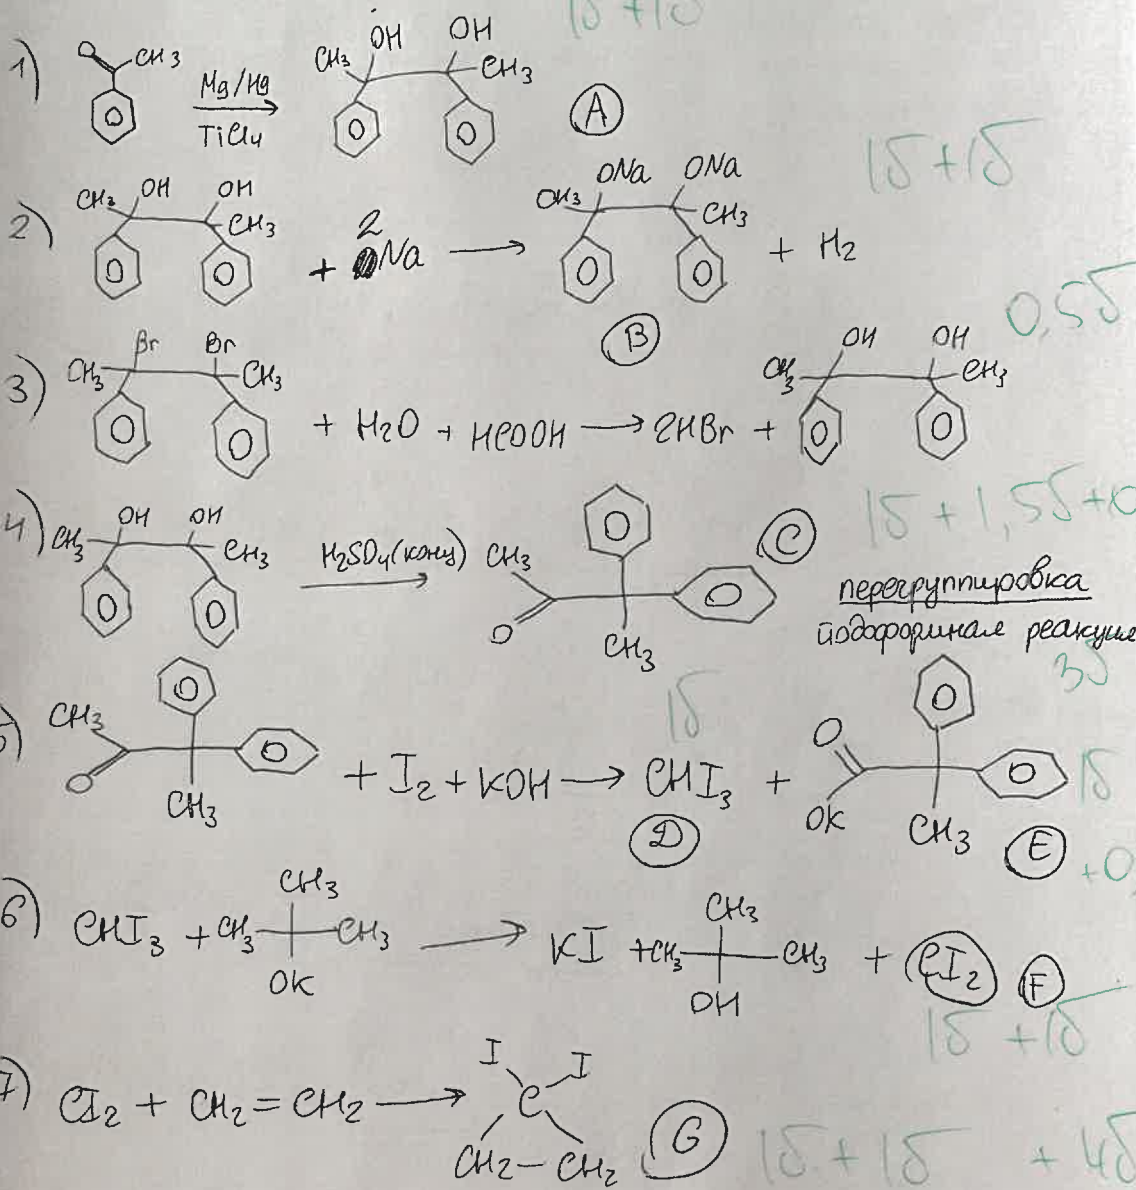 1δ + 1δ
1) O CH3 Mg/Hg TiCl4 CH3 OH OH CH3 A
1δ + 1δ
2) CH3 OH OH CH3 + 2 Na CH3 ONa ONa CH3 + H2
B
0,5δ
3) CH3 Br Br CH3 + H2O + HCOOH → 2HBr + CH3 OH OH CH3
1δ + 1,5δ +0
4) CH3 OH OH CH3 H2SO4 (конц) CH3 O CH3 C
перегруппировка
йодоформная реакция
3δ
1δ
CH3 O CH3 + I2 + KOH → CHI3 + O OK CH3
D E
1δ
+0,
6) CHI3 + CH3 CH3 CH3 OK → KI + CH3 CH3 CH3 OH + CI2 F
1δ + 1δ
7) CI2 + CH2 = CH2 → I I C CH2 – CH2 G
1δ + 1δ + 4δ